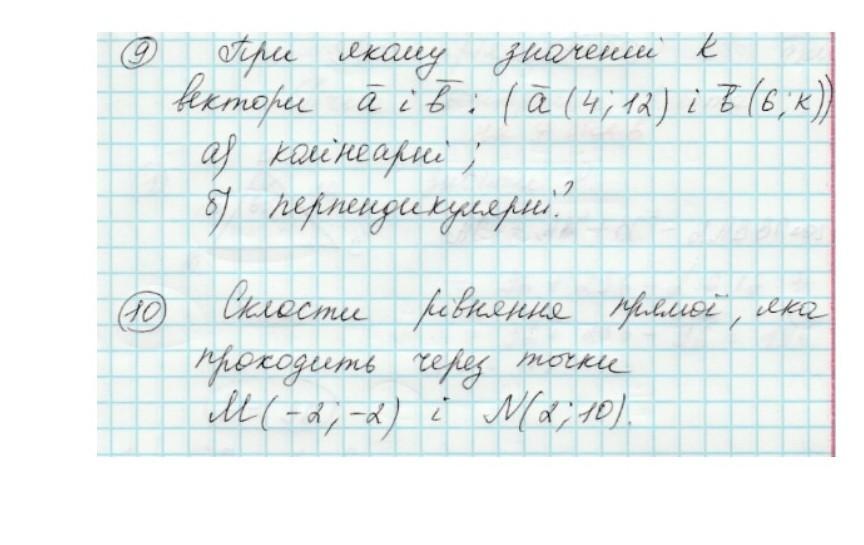 9 При якому значенні k
вектори a̅ і b̅ : (a̅ (4; 12) і b̅ (6; k))
а) колінеарні ;
б) перпендикулярні?
10 Скласти рівняння прямої, яка
проходить через точки
M(-2; -2) і N(2; 10).